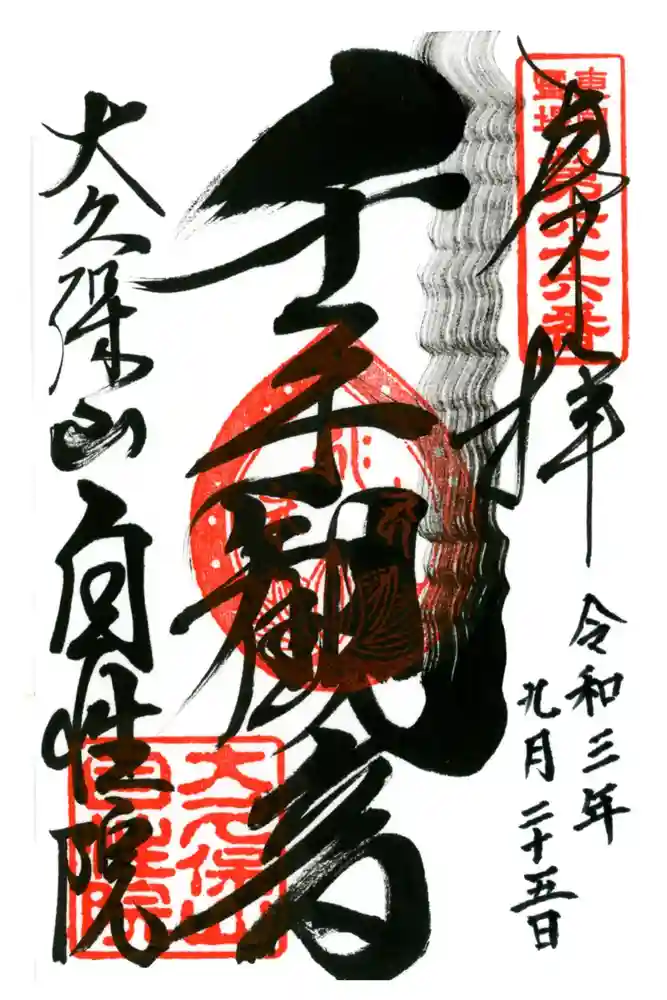 奉拝
令和三年
九月二十五日
千手観音
大久保山
自性院
第六十六番
大久保山
自性院